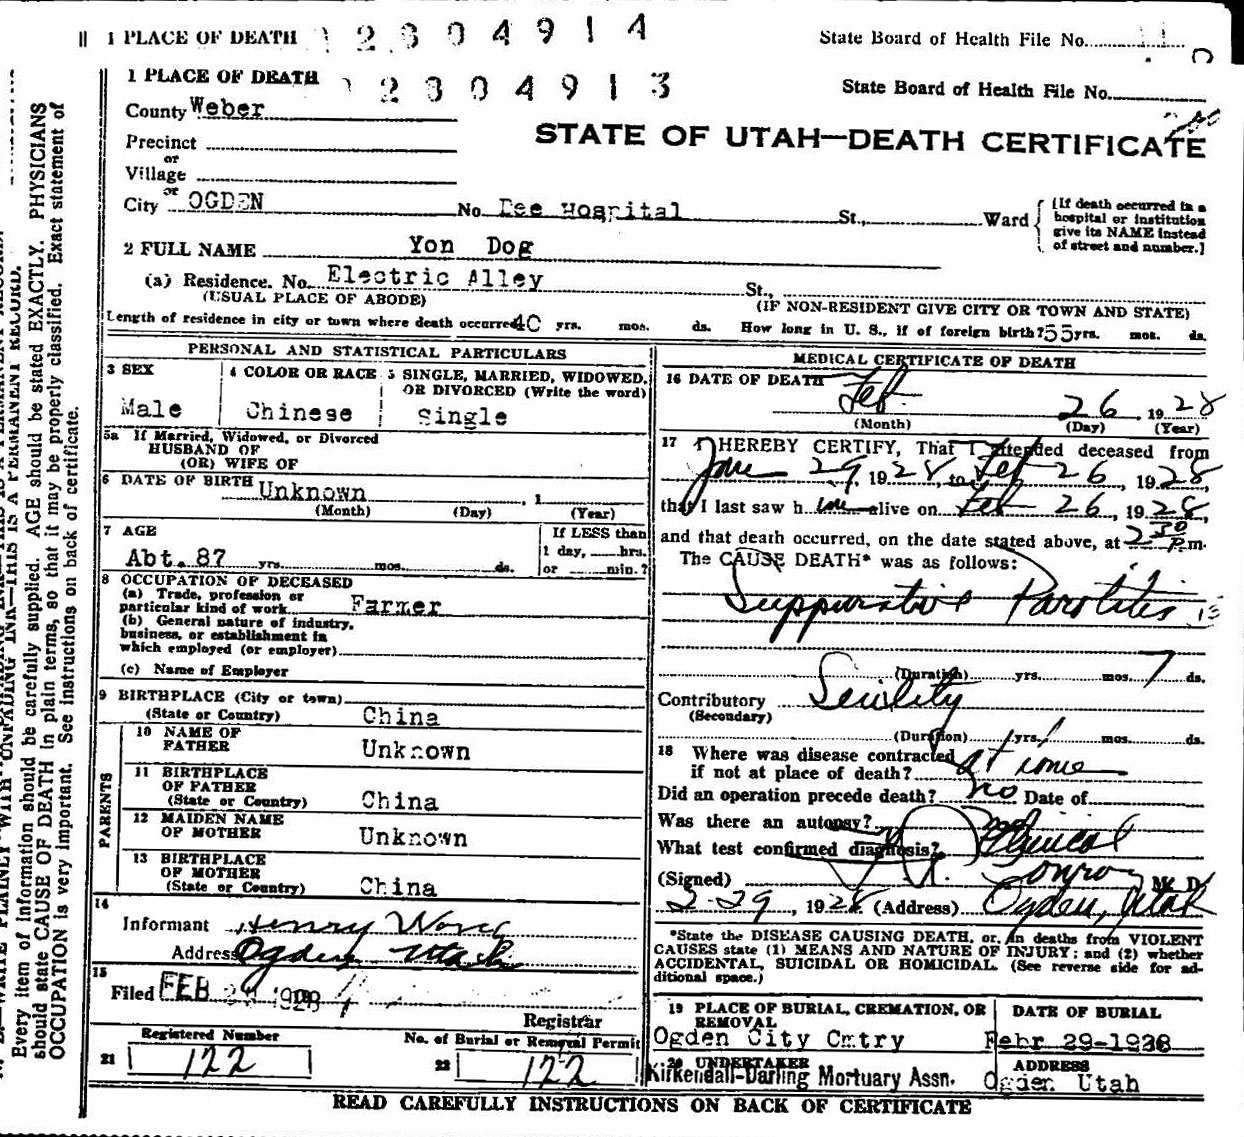 1 PLACE OF DEATH 2 3 0 4 9 1 4 State Board of Health File No.
1 PLACE OF DEATH 2 3 0 4 9 1 3 State Board of Health File No.
County Weber
STATE OF UTAH—DEATH CERTIFICATE
Precinct
or
Village
or
City OGDEN No. Dee Hospital St., Ward
[If death occurred in a
hospital or institution
give its NAME instead
of street and number.]
2 FULL NAME Yon Dog
(a) Residence. No. Electric Alley St.,
(USUAL PLACE OF ABODE) (IF NON-RESIDENT GIVE CITY OR TOWN AND STATE)
Length of residence in city or town where death occurred 40 yrs. mos. ds. How long in U. S., if of foreign birth? 55 yrs. mos. ds.
PERSONAL AND STATISTICAL PARTICULARS
3 SEX
Male
4 COLOR OR RACE
Chinese
5 SINGLE, MARRIED, WIDOWED,
OR DIVORCED (Write the word)
Single
5a If Married, Widowed, or Divorced
HUSBAND OF
(OR) WIFE OF
6 DATE OF BIRTH Unknown , 1
(Month) (Day) (Year)
7 AGE
Abt. 87 yrs. mos. ds.
If LESS than
1 day, hrs.
or min.?
8 OCCUPATION OF DECEASED
(a) Trade, profession or
particular kind of work Farmer
(b) General nature of industry,
business, or establishment in
which employed (or employer)
(c) Name of Employer
9 BIRTHPLACE (City or town)
(State or Country) China
PARENTS
10 NAME OF
FATHER Unknown
11 BIRTHPLACE
OF FATHER
(State or Country) China
12 MAIDEN NAME
OF MOTHER Unknown
13 BIRTHPLACE
OF MOTHER
(State or Country) China
14
Informant Henry Wong
Address Ogden Utah
15
Filed FEB 1928
Registrar
Registered Number
21 122
No. of Burial or Removal Permit
22 122
MEDICAL CERTIFICATE OF DEATH
16 DATE OF DEATH Feb 26, 1928
(Month) (Day) (Year)
17 I HEREBY CERTIFY, That I attended deceased from
Jan 29, 1928, to Feb 26, 1928,
that I last saw h im alive on Feb 26, 1928,
and that death occurred, on the date stated above, at 2 30 P.m.
The CAUSE DEATH* was as follows:
Suppurative Parotitis
(Duration) yrs. mos. 7 ds.
Contributory Senility
(Secondary)
(Duration) yrs. mos. ds.
18 Where was disease contracted
if not at place of death? at home
Did an operation precede death? no Date of
Was there an autopsy? no
What test confirmed diagnosis? Clinical
(Signed) Conroy M. D.
2-29, 1928 (Address) Ogden, Utah
*State the DISEASE CAUSING DEATH, or, in deaths from VIOLENT
CAUSES state (1) MEANS AND NATURE OF INJURY; and (2) whether
ACCIDENTAL, SUICIDAL OR HOMICIDAL. (See reverse side for ad-
ditional space.)
19 PLACE OF BURIAL, CREMATION, OR
REMOVAL
Ogden City Cmtry
DATE OF BURIAL
Febr 29-1928
20 UNDERTAKER
Kirkendall-Darling Mortuary Assn.
ADDRESS
Ogden Utah
READ CAREFULLY INSTRUCTIONS ON BACK OF CERTIFICATE
Every item of information should be carefully supplied. AGE should be stated EXACTLY. PHYSICIANS
should state CAUSE OF DEATH in plain terms, so that it may be properly classified. Exact statement of
OCCUPATION is very important. See instructions on back of certificate.